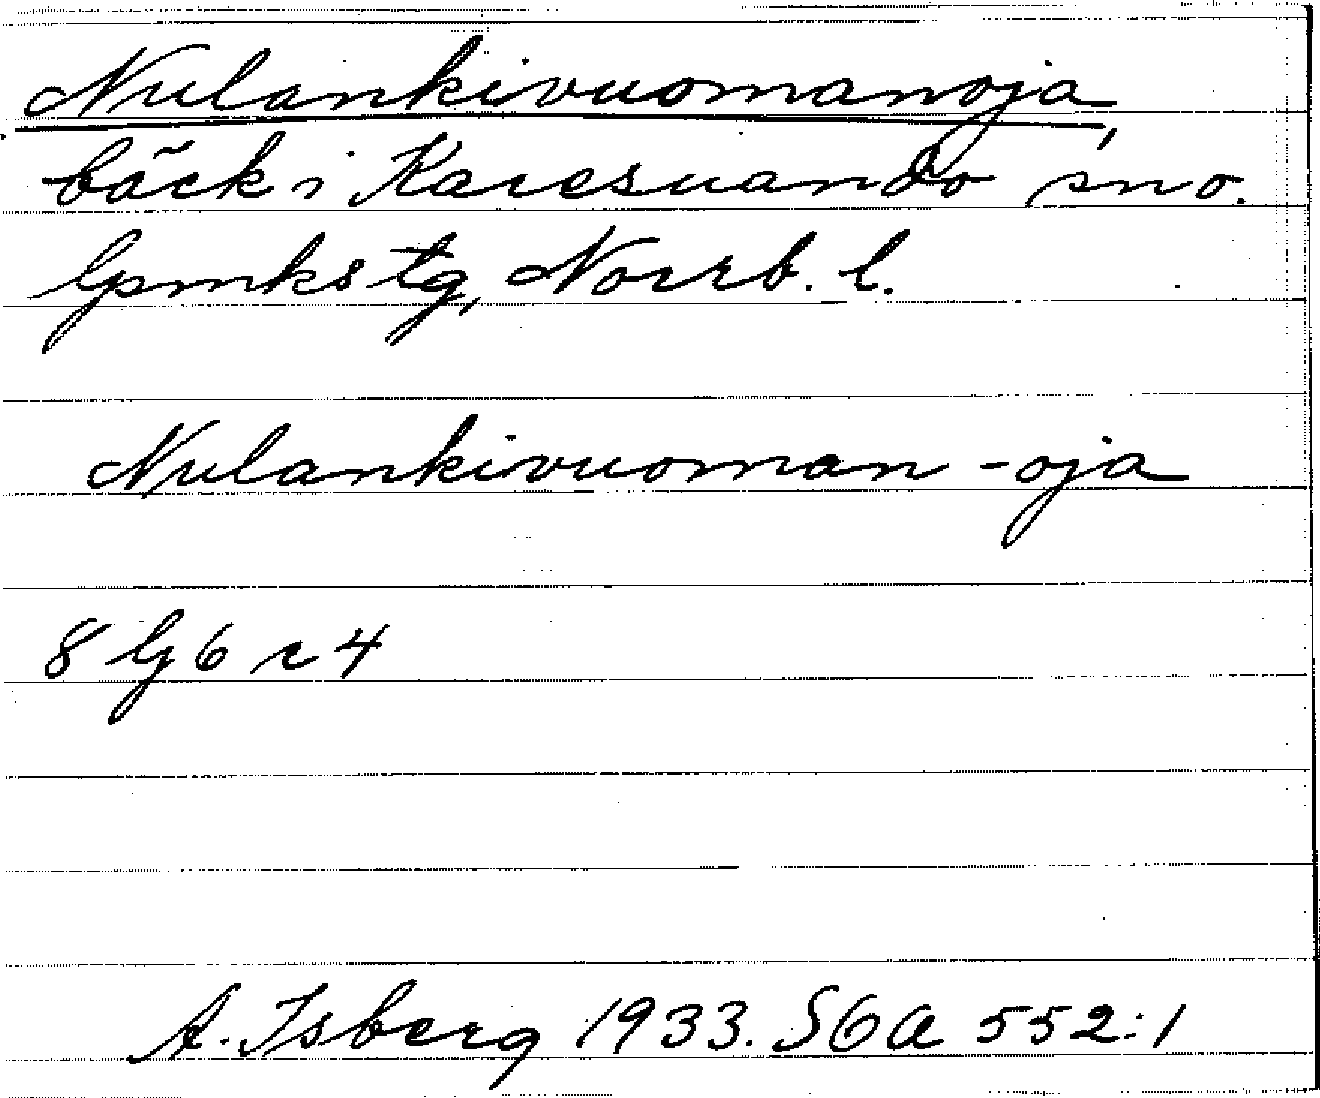 Nulankivuomanoja,
bäck i Karesuando sn o.
lpmkstg, Norrb. l.
Nulankivuoman -oja
8 lg 6 r 4
A. Isberg 1933. SOA 552:1